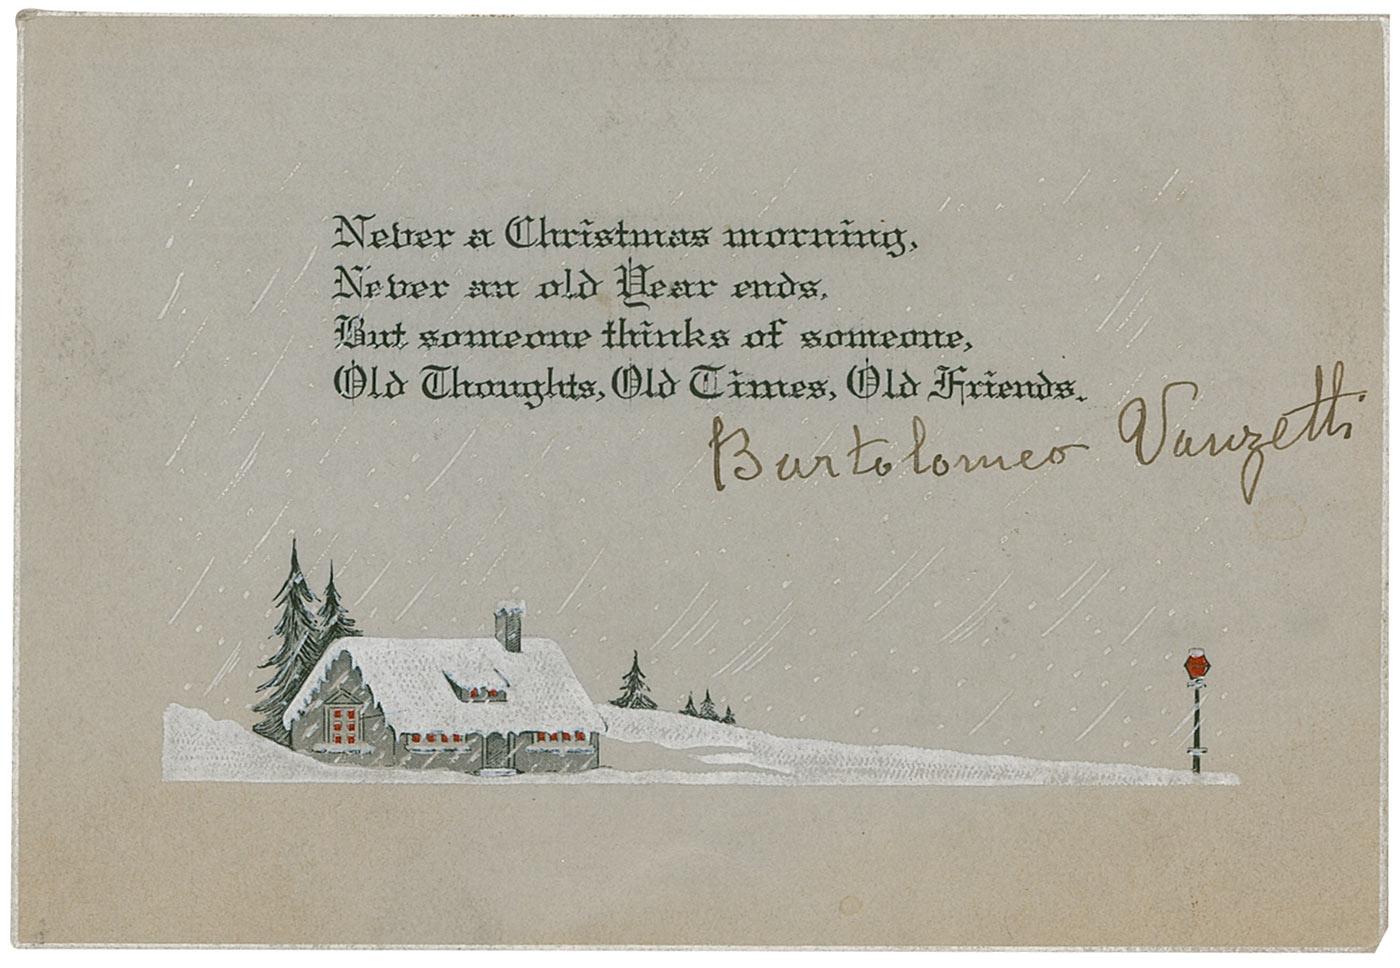 Never a Christmas morning,
Never an old Year ends,
But someone thinks of someone,
Old Thoughts, Old Times, Old Friends.
Bartolomeo Vanzetti